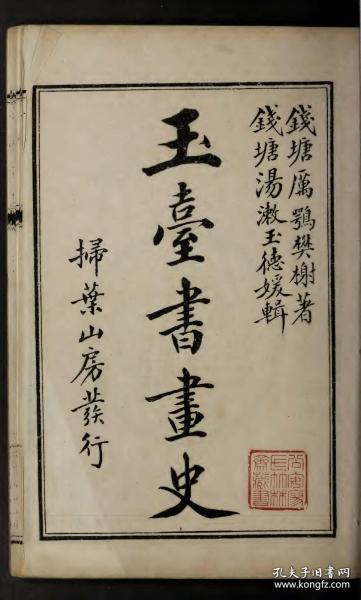 錢塘厲鶚樊榭著
錢塘湯漱玉德媛輯
玉臺書畫史
掃葉山房發行
孔夫子旧书网
www.kongfz.com